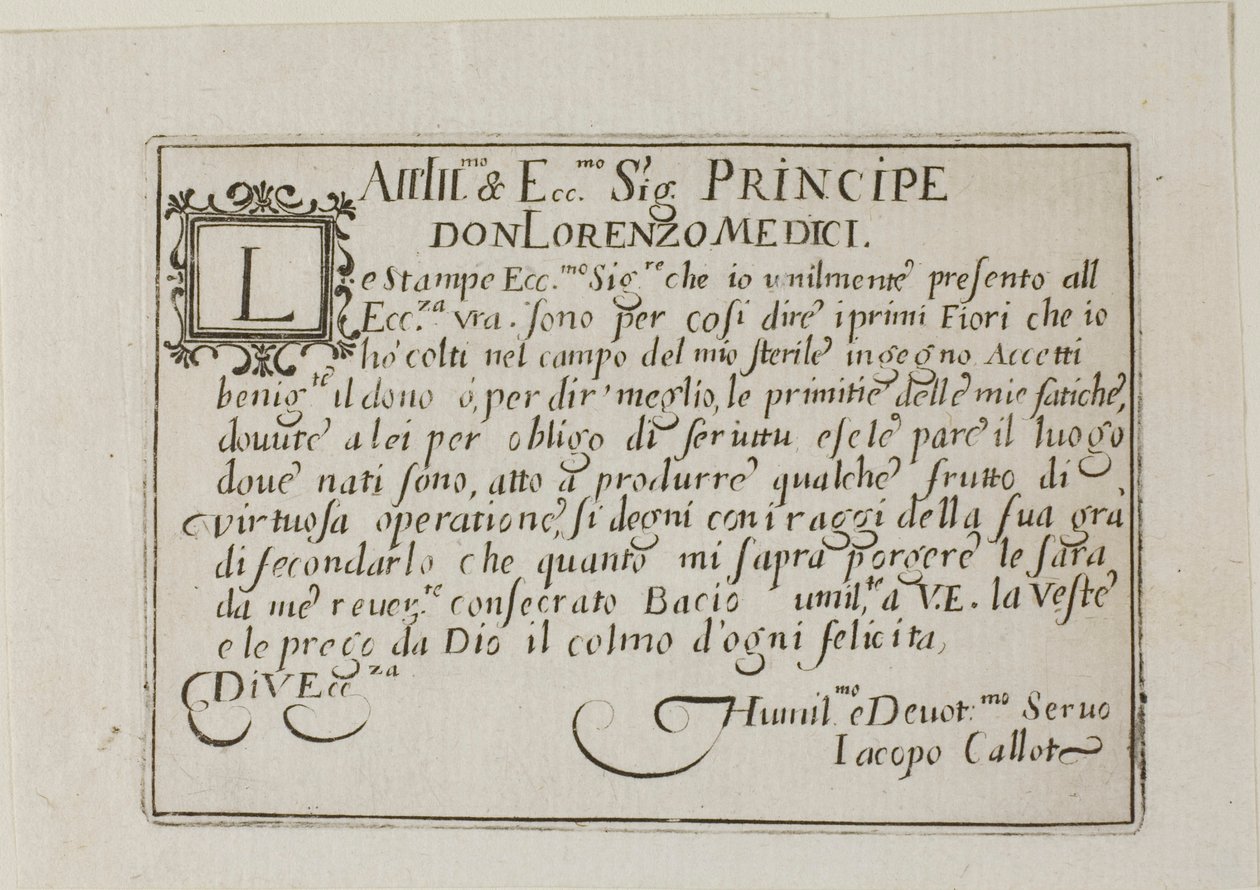 All Ill.mo & Ecc.mo Sig.r PRINCIPE
DON LORENZO MEDICI.
Le Stampe Ecc.mo Sig.re che io vmilmente presento all
Ecc.za vra. sono per cosi dire i primi Fiori che io
hò colti nel campo del mio sterile ingegno. Accetti
benig.te il dono ò, per dir' meglio, le primitie delle mie fatiche,
douute a lei per obligo di seruitu e se le pare il luogo
doue nati sono, atto a produrre qualche frutto di
virtuosa operatione, si degni con i raggi della sua grà
di secondarlo che quanto mi sapra porgere le sara
da me reuer.te consecrato Bacio umil.te a V.E. la Veste
e le prego da Dio il colmo d'ogni felicita,
Di V Ecc.za
Humil.mo e Deuot.mo Seruo
Iacopo Callot